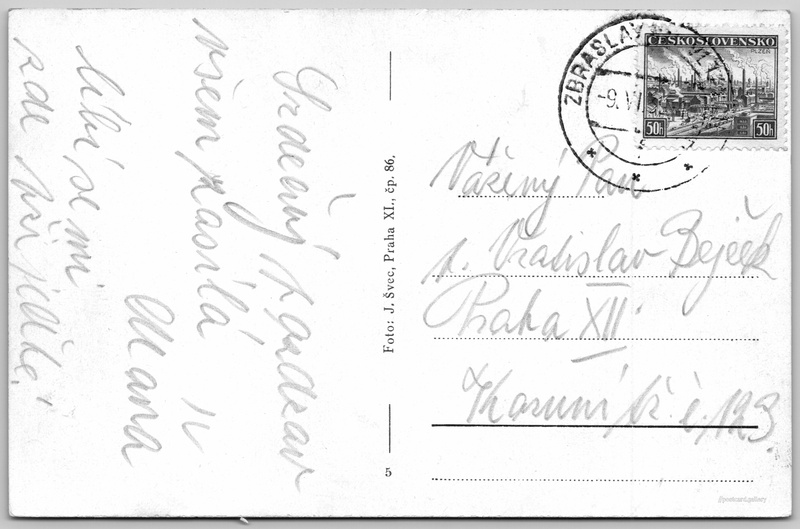 Srdečný pozdrav
všem zasílá
Mana
líbí se mi
zde přijeďte!
Foto: J. Švec, Praha XI., čp. 86.
5
ZBRASLAV
-9. VI
ČESKOSLOVENSKO
PLZEŇ
50h 50h
Vážený Pan
p. Vratislav Bejček
Praha XII
Korunní tř. č. 123.
@postcard.gallery